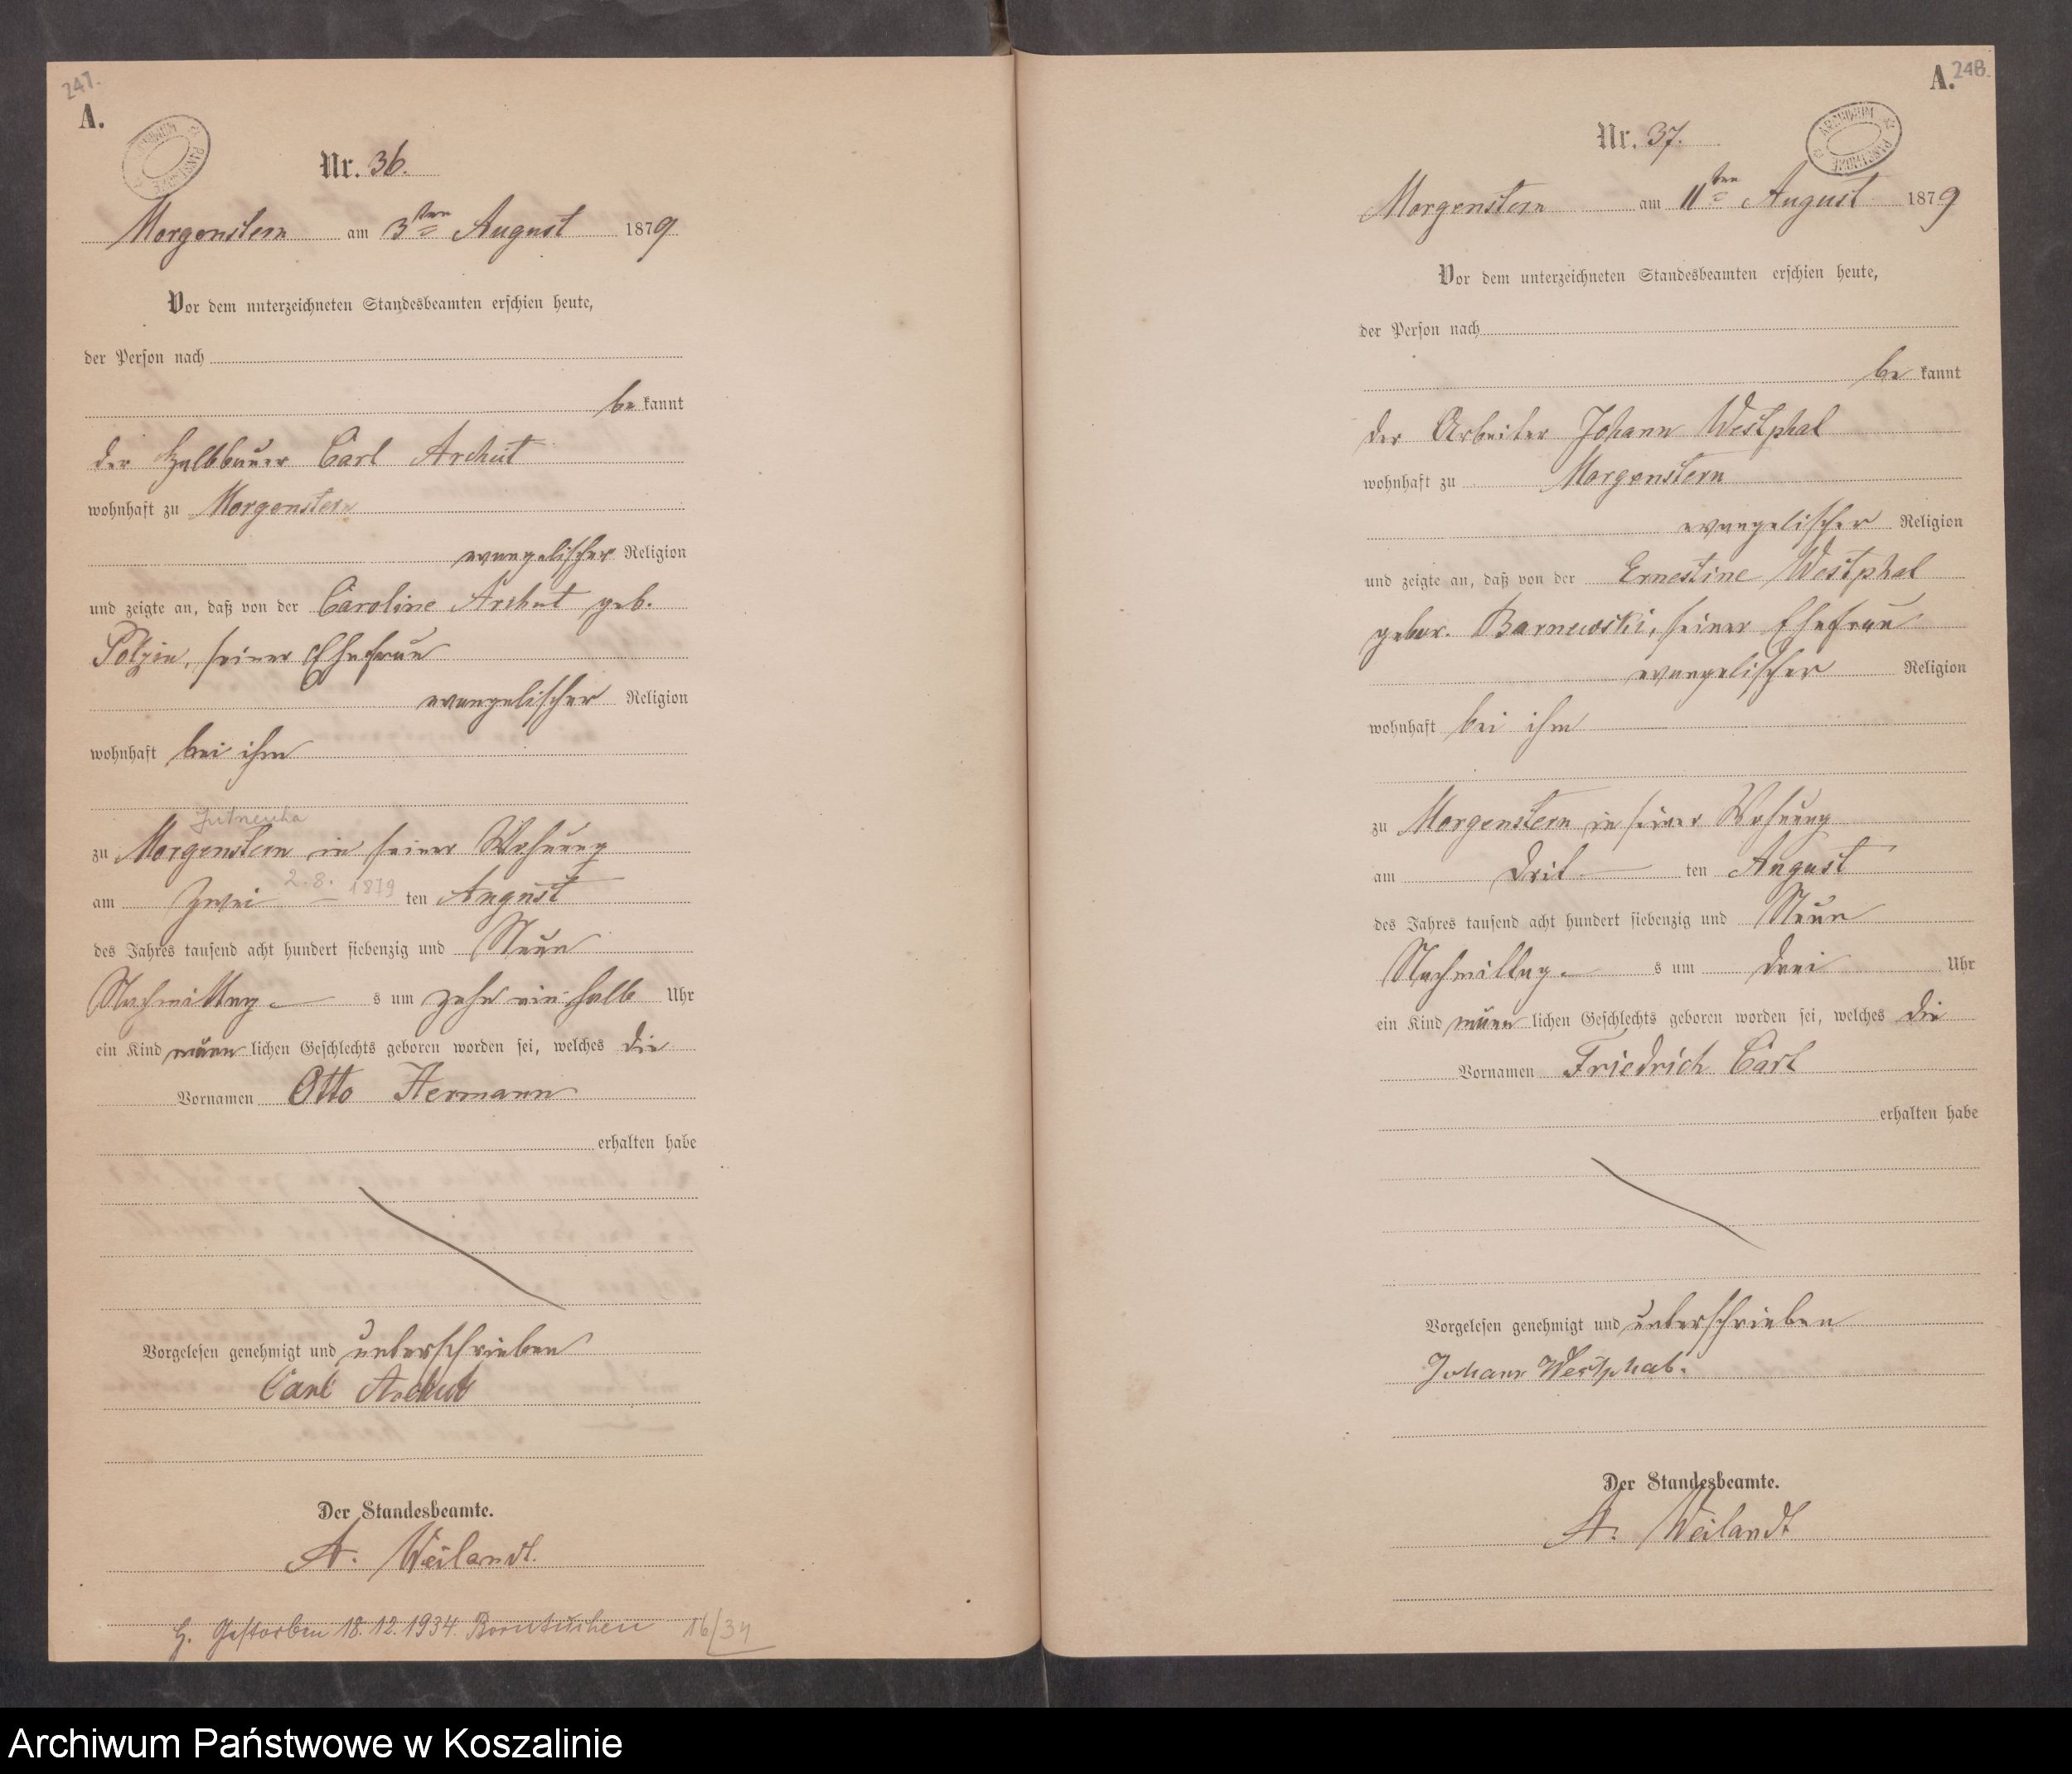 247.
A.
ARCHIWUM PAŃSTWOWE
Nr. 36.
Morgenstern am 3ten August 1879
Vor dem unterzeichneten Standesbeamten erschien heute,
der Person nach
be kannt
der Halbbauer Carl Archut
wohnhaft zu Morgenstern
evangelischer Religion
und zeigte an, daß von der Caroline Archut geb.
Polzin, seiner Ehefrau
evangelischer Religion
wohnhaft bei ihm
Jutrzenka
zu Morgenstern in seiner Wohnung
2.8. 1879
am Zwei ten August
des Jahres tausend acht hundert siebenzig und Neun
Nachmittag s um zehn ein halb Uhr
ein Kind männ lichen Geschlechts geboren worden sei, welches die
Vornamen Otto Hermann
erhalten habe
Vorgelesen genehmigt und unterschrieben
Carl Archut
Der Standesbeamte.
A. Weilandt.
G. Gestorben 18.12.1934. Borntuchen 16/34
A. 248.
ARCHIWUM PAŃSTWOWE
Nr. 37.
Morgenstern am 11ten August 1879
Vor dem unterzeichneten Standesbeamten erschien heute,
der Person nach
be kannt
der Arbeiter Johann Westphal
wohnhaft zu Morgenstern
evangelischer Religion
und zeigte an, daß von der Ernestine Westphal
gebor. Barnewski, seiner Ehefrau
evangelischer Religion
wohnhaft bei ihm
zu Morgenstern in seiner Wohnung
am Drit ten August
des Jahres tausend acht hundert siebenzig und Neun
Nachmittag s um drei Uhr
ein Kind männ lichen Geschlechts geboren worden sei, welches die
Vornamen Friedrich Carl
erhalten habe
Vorgelesen genehmigt und unterschrieben
Johann Westphal.
Der Standesbeamte.
A. Weilandt
Archiwum Państwowe w Koszalinie